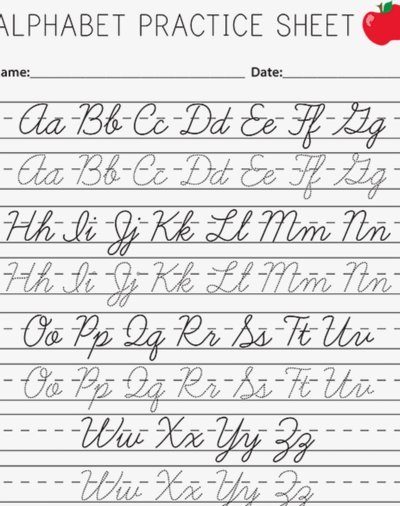 ALPHABET PRACTICE SHEET
ame:____________________ Date:____________
Aa Bb Cc Dd Ee Ff Gg
Aa Bb Cc Dd Ee Ff Gg
Hh Ii Jj Kk Ll Mm Nn
Hh Ii Jj Kk Ll Mm Nn
Oo Pp Qq Rr Ss Tt Uv
Oo Pp Qq Rr Ss Tt Uv
Ww Xx Yy Zz
Ww Xx Yy Zz